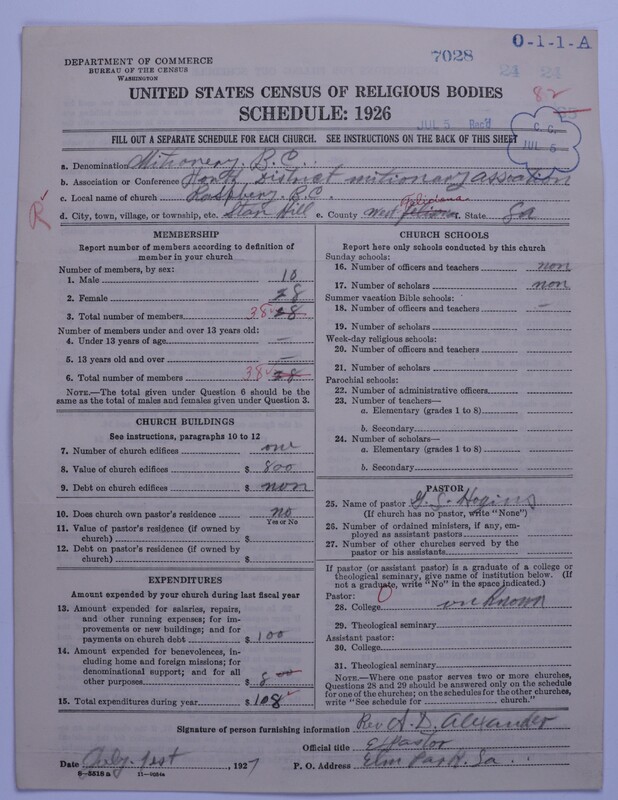 O-1-1-A
7028
DEPARTMENT OF COMMERCE
BUREAU OF THE CENSUS
WASHINGTON
24 24
UNITED STATES CENSUS OF RELIGIOUS BODIES
82
63
SCHEDULE: 1926
JUL 5 Rec'd
C. C.
JUL 5
FILL OUT A SEPARATE SCHEDULE FOR EACH CHURCH. SEE INSTRUCTIONS ON THE BACK OF THIS SHEET
a. Denomination Mitionery. B.C.
b. Association or Conference North District mitionary assocition
c. Local name of church Raspbery B.C.
R
d. City, town, village, or township, etc. Starr Hill e. County West Feliciana State La
MEMBERSHIP
Report number of members according to definition of
member in your church
Number of members, by sex:
1. Male 10
2. Female 28
3. Total number of members 38
Number of members under and over 13 years old:
4. Under 13 years of age —
5. 13 years old and over —
6. Total number of members 38
NOTE.—The total given under Question 6 should be the
same as the total of males and females given under Question 3.
CHURCH BUILDINGS
See instructions, paragraphs 10 to 12
7. Number of church edifices one
8. Value of church edifices $ 800
9. Debt on church edifices $ non
10. Does church own pastor's residence no
Yes or No
11. Value of pastor's residence (if owned by
church) $
12. Debt on pastor's residence (if owned by
church) $
EXPENDITURES
Amount expended by your church during last fiscal year
13. Amount expended for salaries, repairs,
and other running expenses; for im-
provements or new buildings; and for
payments on church debt $ 100
14. Amount expended for benevolences, in-
cluding home and foreign missions; for
denominational support; and for all
other purposes $ 8 00
15. Total expenditures during year $ 108
CHURCH SCHOOLS
Report here only schools conducted by this church
Sunday schools:
16. Number of officers and teachers non
17. Number of scholars non
Summer vacation Bible schools:
18. Number of officers and teachers —
19. Number of scholars
Week-day religious schools:
20. Number of officers and teachers
21. Number of scholars
Parochial schools:
22. Number of administrative officers
23. Number of teachers—
a. Elementary (grades 1 to 8)
b. Secondary
24. Number of scholars—
a. Elementary (grades 1 to 8)
b. Secondary
PASTOR
25. Name of pastor G. S. Hogins
(If church has no pastor, write "None")
26. Number of ordained ministers, if any, em-
ployed as assistant pastors
27. Number of other churches served by the
pastor or his assistants
If pastor (or assistant pastor) is a graduate of a college or
theological seminary, give name of institution below. (If
not a graduate, write "No" in the space indicated.)
Pastor:
28. College 0 unknown
29. Theological seminary
Assistant pastor:
30. College
31. Theological seminary
NOTE.—Where one pastor serves two or more churches,
Questions 28 and 29 should be answered only on the schedule
for one of the churches; on the schedules for the other churches,
write "See schedule for church."
Signature of person furnishing information Rev A. D. Alexander
Official title Ex Pastor
Date July. 1st, 1927 P. O. Address Elm Park. La
8-5518 a 11-9054a